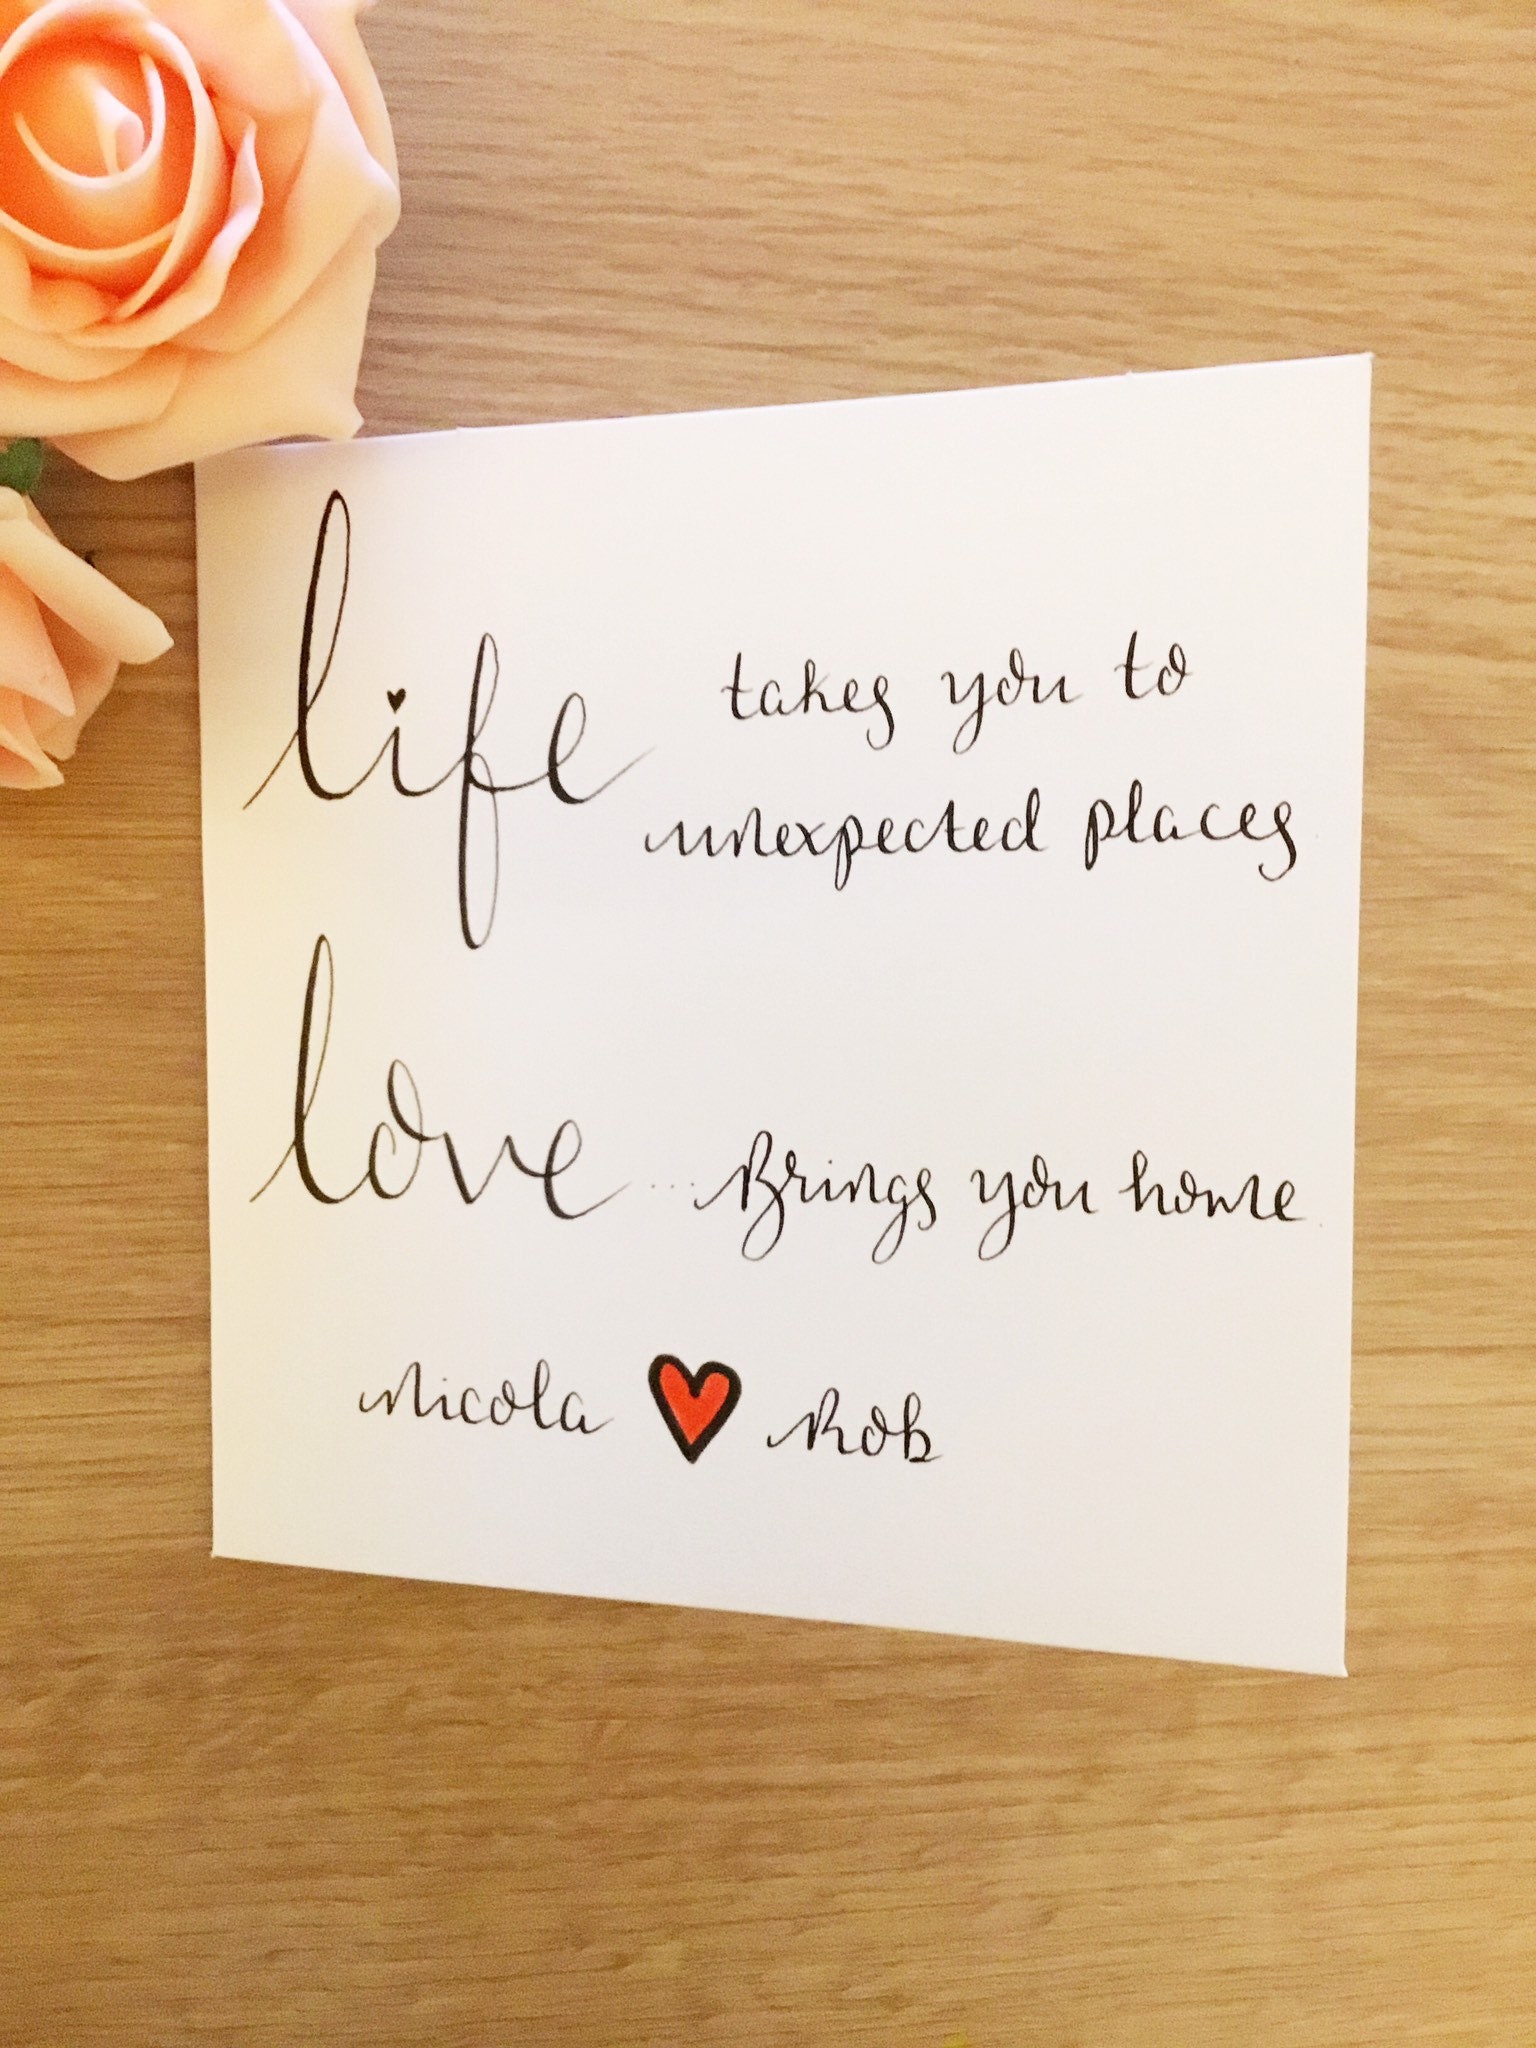 life takes you to
unexpected places
love ... Brings you home
Nicola ♥ Rob